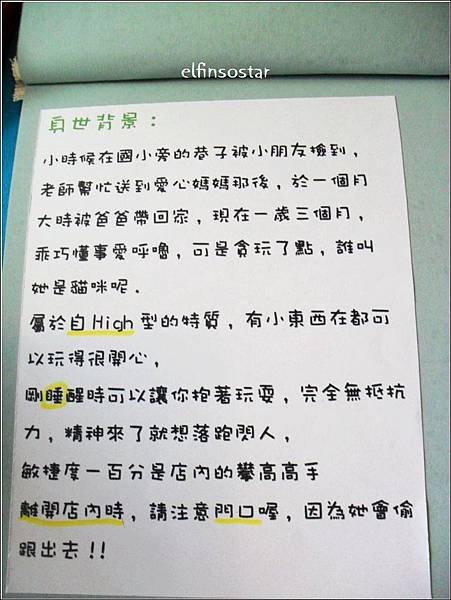 elfinsostar
身世背景：
小時候在國小旁的巷子被小朋友撿到，
老師幫忙送到愛心媽媽那後，於一個月
大時被爸爸帶回家，現在一歲三個月，
乖巧懂事愛呼嚕，可是貪玩了點，誰叫
她是貓咪呢．
屬於自High型的特質，有小東西在都可
以玩得很開心，
剛睡醒時可以讓你抱著玩耍，完全無抵抗
力，精神來了就想落跑閃人，
敏捷度一百分是店內的攀高高手
離開店內時，請注意門口喔，因為她會偷
跟出去!!